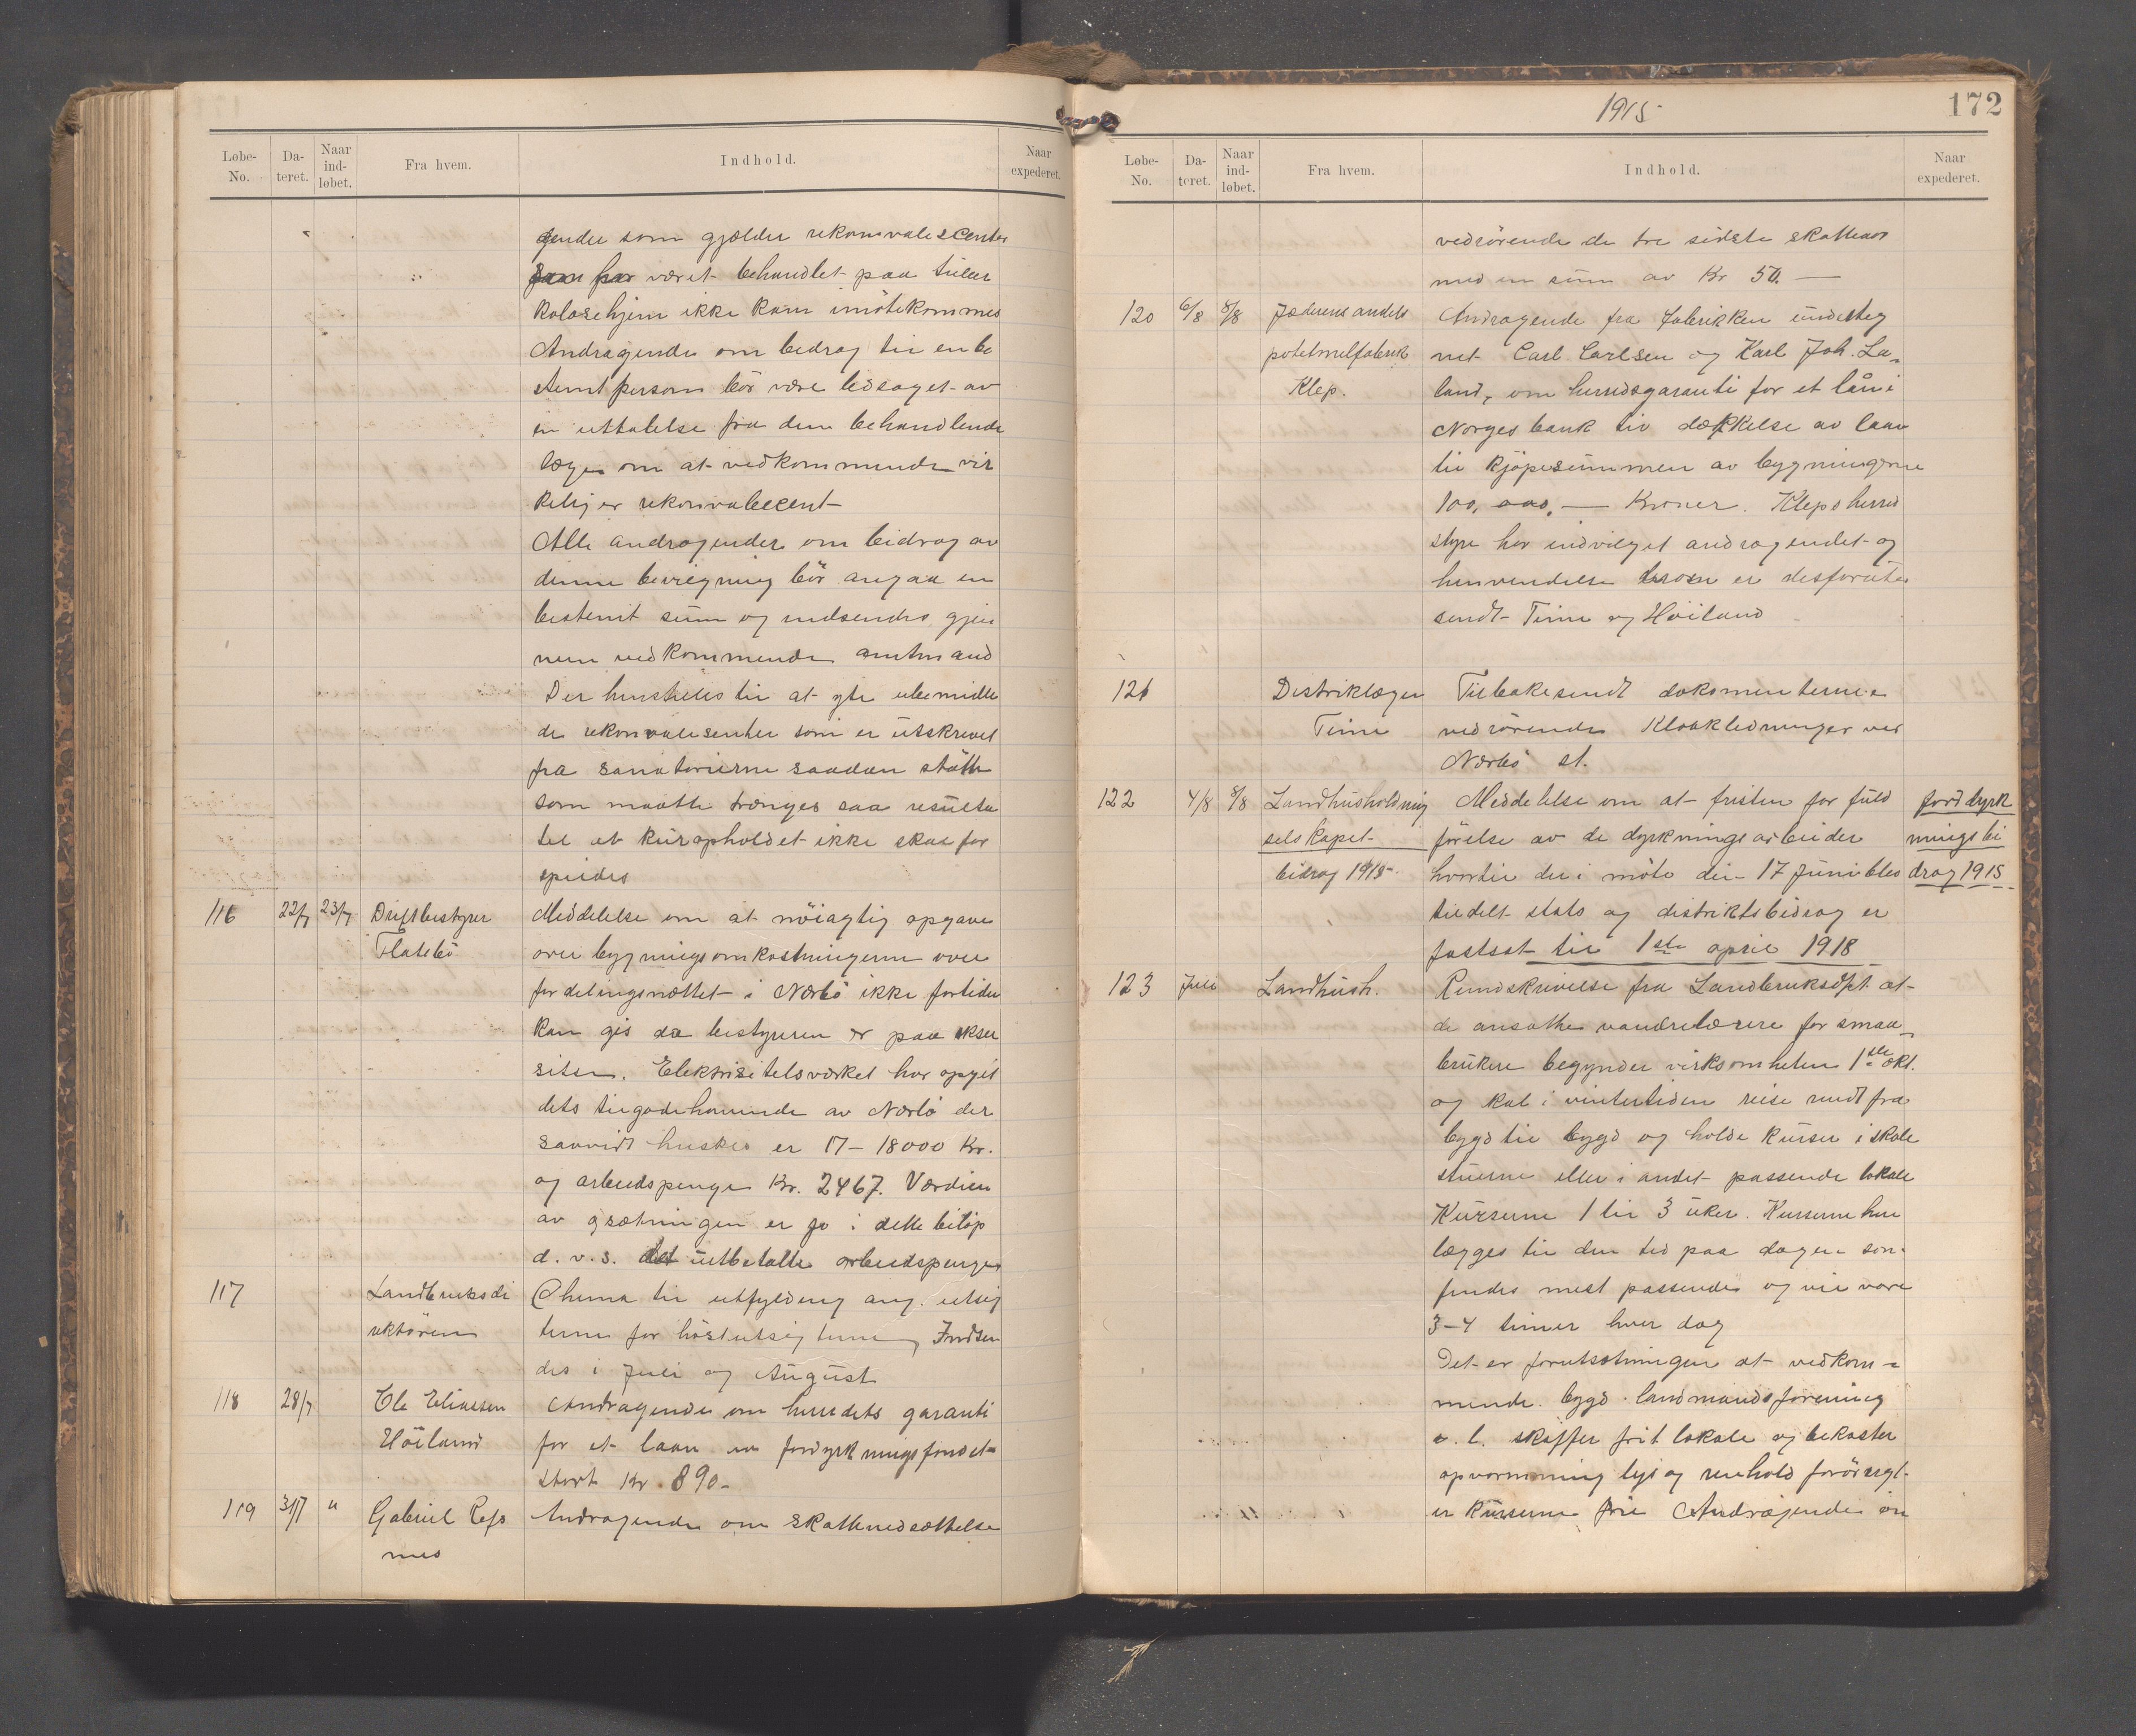 Løbe-No. Da-teret. Naar ind-løbet. Fra hvem. Indhold. Naar expederet.
gender som gjelder rekonvalescenter
som har været behandlet paa tuber
kolosehjem ikke kan imøtekommes
Andragende om bedrag til en be
stemt person bör være ledsaget av
en uttalelse fra den behandlende
læge om at vedkommende vir
kelig er rekonvalecent
Alle andragender om bidrag av
denne bevilgning bör angaa en
bestemt sum og indsendes gjen
nem vedkommende amtmand
Der henstilles til at yte ubemidle
de rekonvalesenter som er utskrevet
fra sanatorierne saadan stötte
som maatte trænges saa resulta
tet at kuropholdet ikke skal for
spildes
116 22/7 23/7 Driftbestyrer Meddelelse om at nöiagtig opgave
Flatebö over bygningsomkostningerne over
fordelingsnættet i Nærbö ikke fortiden
kan gis da bestyreren er paa ekser
sisen. Elektrisitetsværket har opgit
dets tilgodehavende av Nærbö der
saavidt huskes er 17-18000 Kr.
og arbeidspenge Kr. 2467. Værdien
av gsætningen er jo i dette belöp
d. v. s. det utbetalte arbeidspenger
117 Landbruksdi Skema til utfylding ang. utsig
rektören terne for höstutsigterne, Indsen
des i Juli og August
118 28/7 Ole Eliassen Andragende om herredets garanti
Höiland for et laan av jorddyrkningsfondet
stort Kr. 890.-
119 31/7 " Gabriel Refs Andragende om skattenedsættelse
nes
1915 172
Løbe-No. Da-teret. Naar ind-løbet. Fra hvem. Indhold. Naar expederet.
vedrörende de tre sidste skatteaar
med en sum av Kr 50.-
120 6/8 8/8 Jæderens andels Andragende fra fabrikken underteg
potetmelfabrik net Carl Carlsen og Karl Joh. La-
Klep. land, om herredsgaranti for et lån i
Norges bank til dækkelse av laan
til kjöpesummen av bygningerne
100,000,- Kroner. Klep herred
styre har indvilget andragendet og
henvendelse herom er desforuten
sendt Time og Höiland
121 Distriktlægen Tilbakesendt dokumenterne
Time vedrörende Kloakledninger ved
Nærbö st.
122 4/8 8/8 Landhusholdning Meddelelse om at fristen for fuld jorddyrk
selskapet förelse av de dyrkningsarbeider ningsbi
bidrag 1915 hvortil der i möte den 17 juni blev drag 1915
tildelt stats og distriktsbidrag er
fastsat til 1ste april 1918
123 Juli Landhush. Rundskrivelse fra Landbruksdpt. at
de ansatte vandrelærere for smaa-
brukere begynder virksomheten 1ste okt.
og skal i vintertiden reise rundt fra
bygd til bygd og holde kurser i skole
stuerne eller i andet passende lokale
Kurserne 1 til 3 uker. Kurserne hen
lægges til den tid paa dagen som
findes mest passende og vil vare
3-4 timer hver dag
Det er forutsætningen at vedkom-
mende bygd landmandsforening
e. l. skaffer frit lokale og bekoster
opvarmning lys og renhold forövrigt
er kurserne frie Andragende om